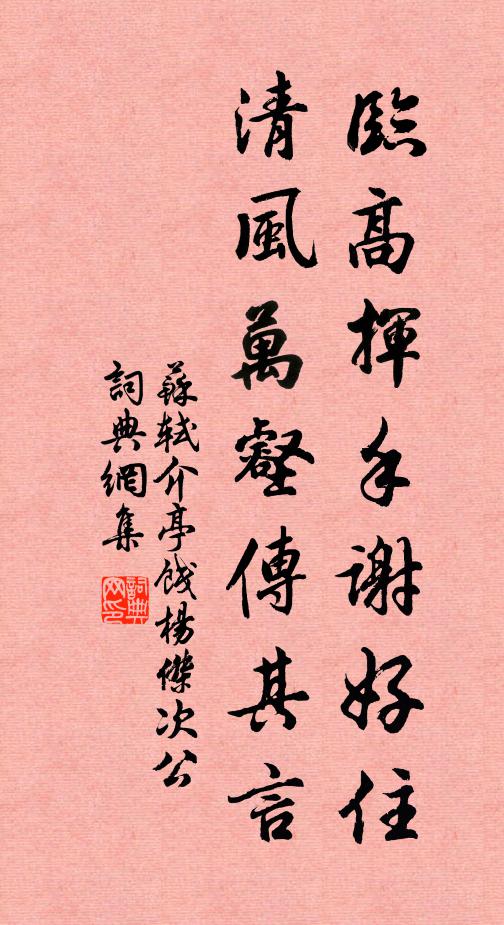 臨高揮手謝好住
清風萬壑傳其言
蘇軾介亭餞楊傑次公
詞典網集
詞典網印